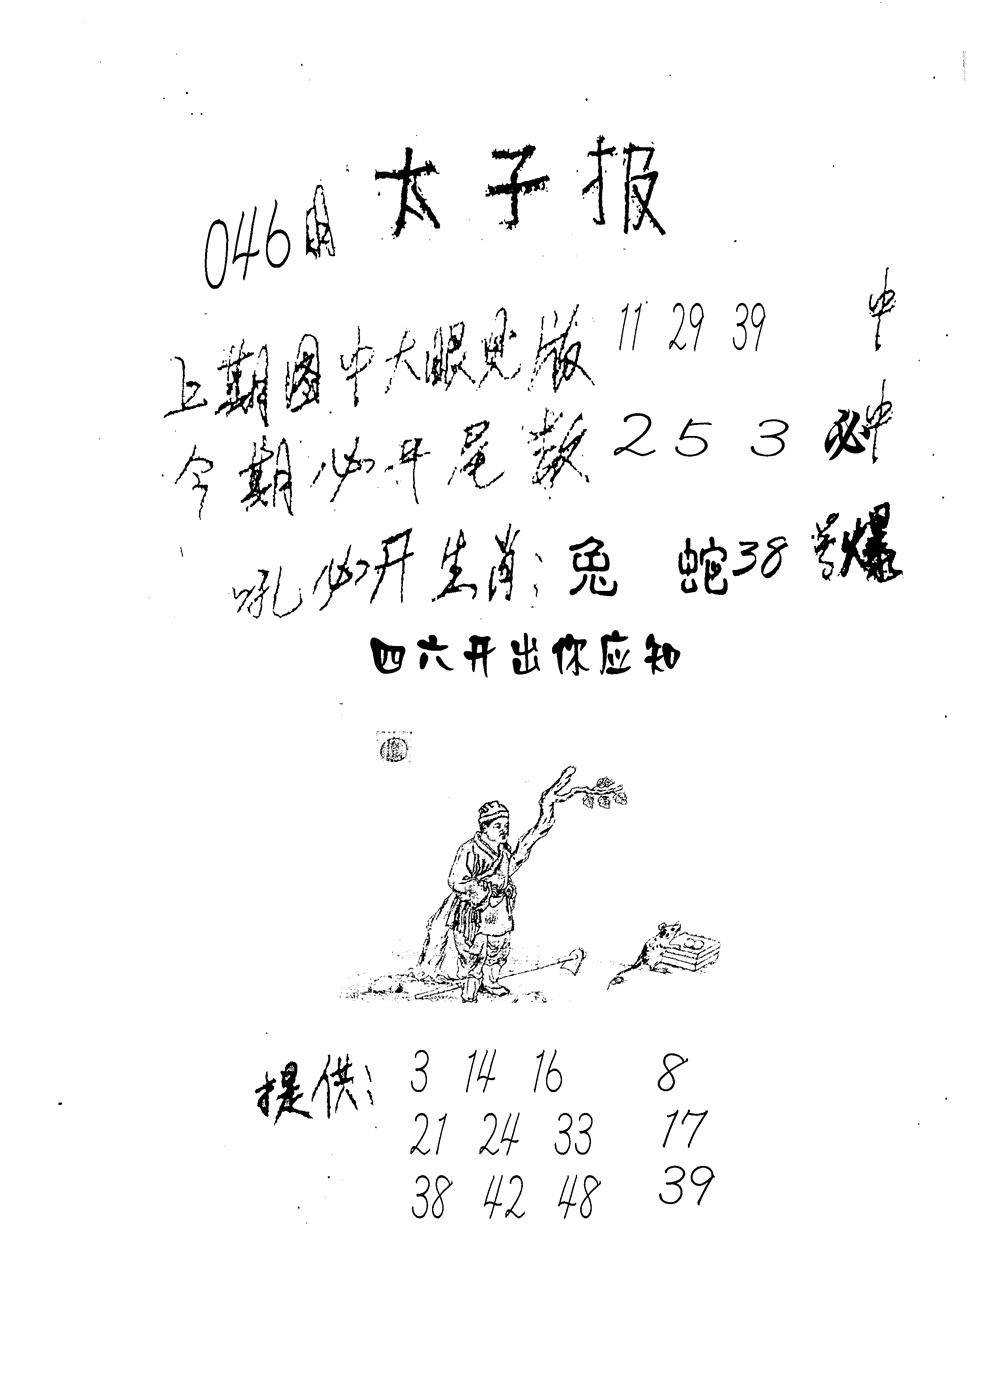 太子报
046期
上期图中大眼见版 11 29 39 中
今期必开尾数 2 5 3 必中
吼必开生肖: 兔 蛇 38 号爆
四六开出你应知
提供: 3 14 16 8
21 24 33 17
38 42 48 39